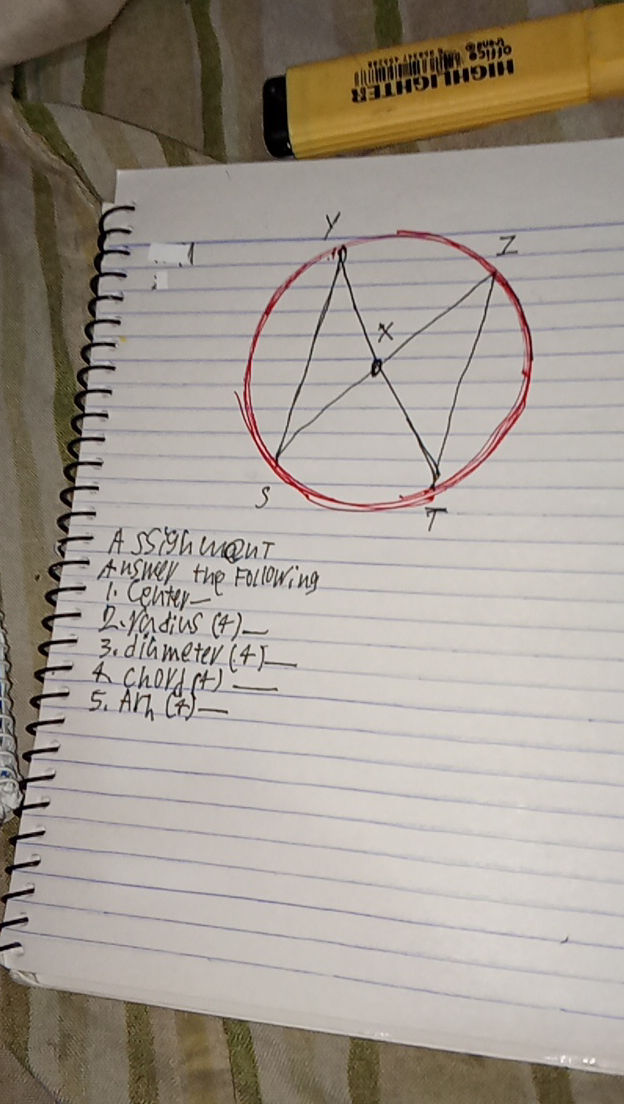 HIGHLIGHTER
office
trend®
Y
Z
X
S
T
Assignment
Answer the Following
1. Center_
2. radius (4)_
3. diameter (4)_
4. chord (4) _
5. Arh (4)_